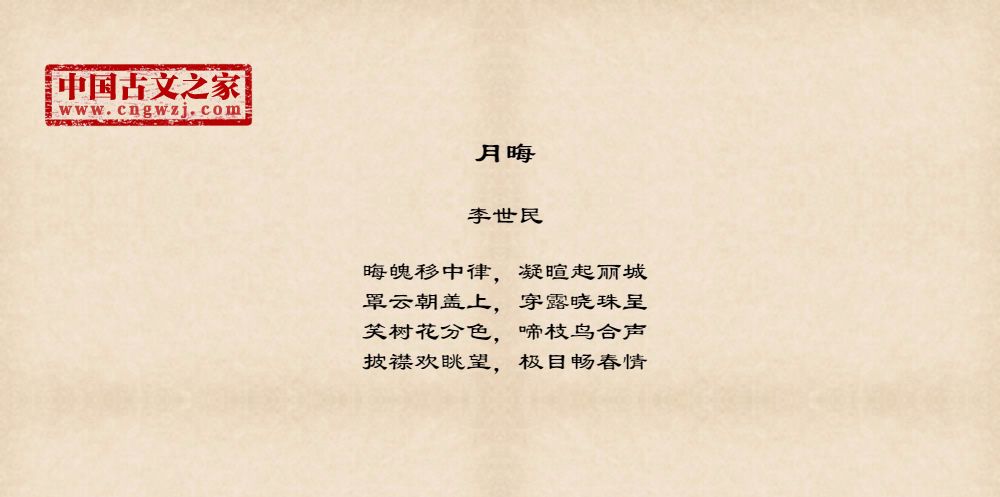 中国古文之家
www.cngwzj.com
月晦
李世民
晦魄移中律，凝暄起丽城
罩云朝盖上，穿露晓珠呈
笑树花分色，啼枝鸟合声
披襟欢眺望，极目畅春情